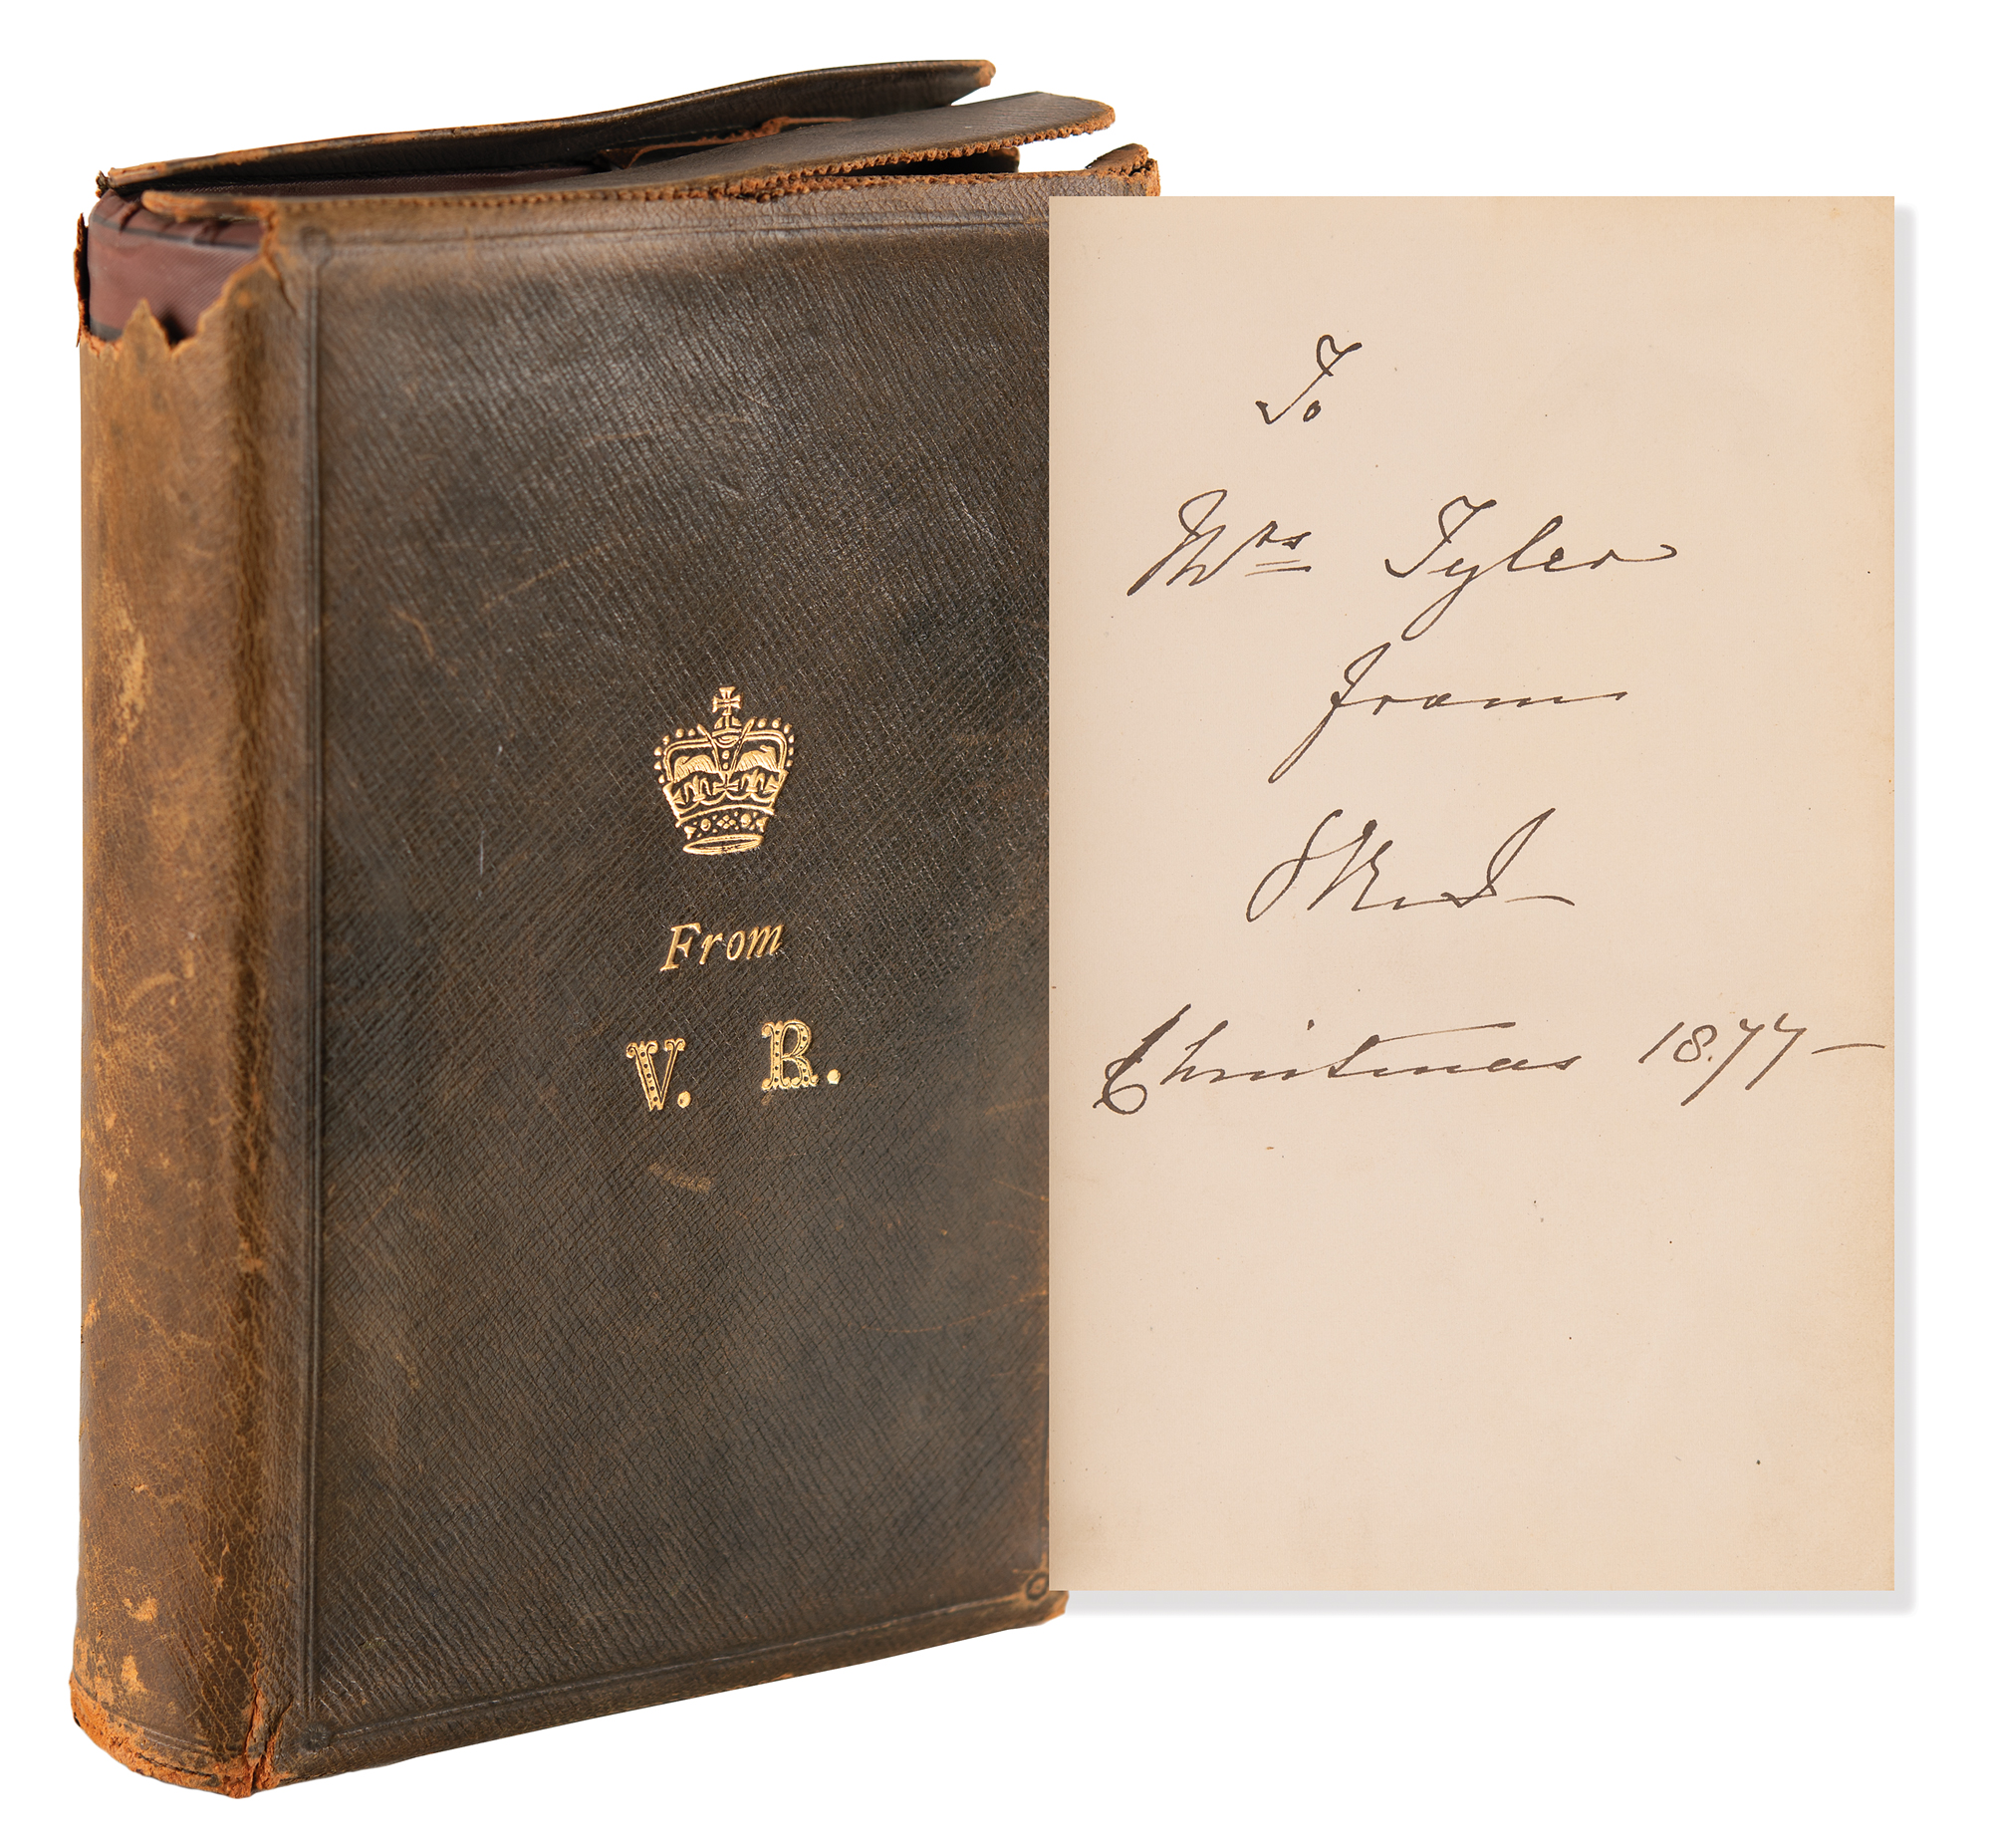 From
V. R.
To
Mrs Tyler
from
Christmas 1877 —